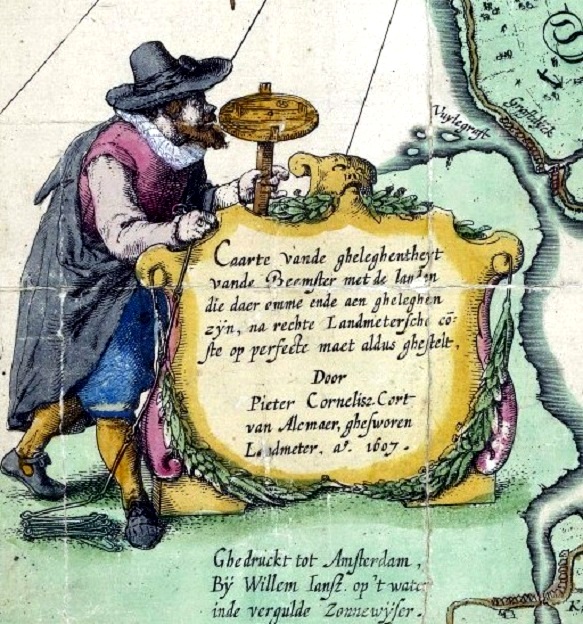 Vuylegrift
Graftdyck
Caarte vande gheleghentheyt
vande Beemster met de landen
die daer omme ende aen gheleghen
zyn, na rechte Landmetersche cõ-
ste op perfecte maet aldus ghestelt,
Door
Pieter Cornelisz Cort
van Alcmaer, ghesworen
Landmeter. aº. 1607.
Ghedruckt tot Amsterdam,
Bÿ Willem Ianss. op 't water
inde vergulde Zonnewÿser.